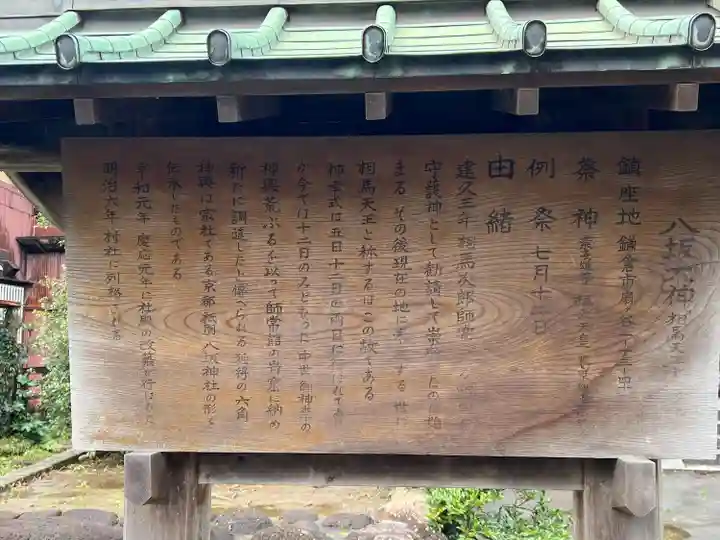 八坂大神 相馬天王
鎮座地 鎌倉市扇ヶ谷一丁目
祭神
例祭 七月十二日
由緒
建久三年 相馬次郎師常
守護神として勧請して崇
まる その後現在の地に する 世に
相馬天王と称するはこの故である
神幸式は五日十二日の両日に行はれて
が今では十二日のみとなった 中世御神幸の
神輿荒ぶるを以って師常館の岩窟に納め
新たに調進したと傳へられる独得の六角
神輿は宗社である京都祇園八坂神社の形を
伝承したものである
享和元年 慶応元年に社殿の改築が行はれた
明治六年 村社に列格